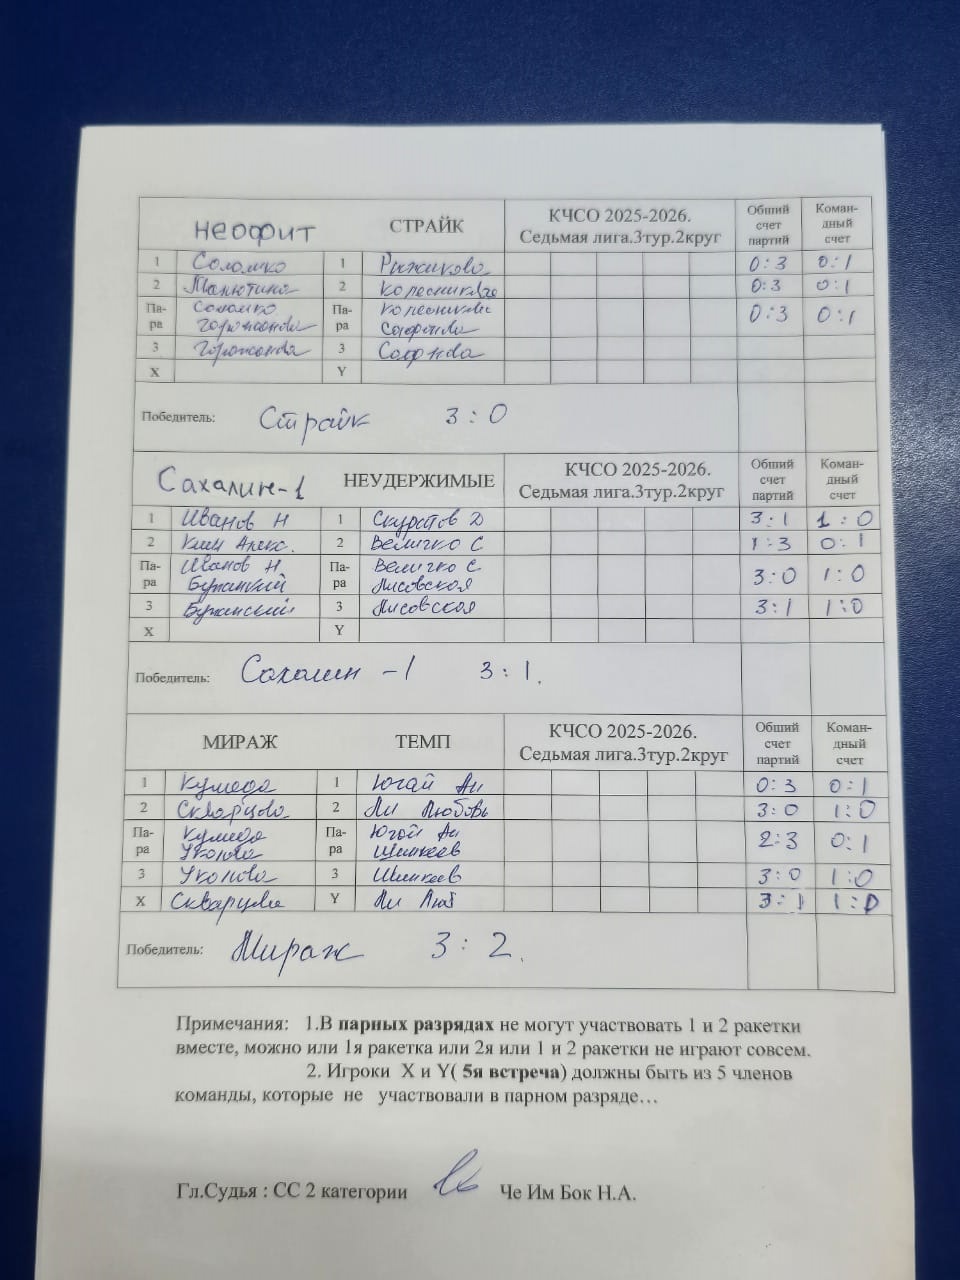 неофит СТРАЙК КЧСО 2025-2026. Седьмая лига.3тур.2круг Общий счет партий Коман-дный счет
1 Соломко 1 Рыжикова 0:3 0:1
2 Малютина 2 0:3 0:1
Па-ра Соломко Па-ра 0:3 0:1
3 3
X Y
Победитель: Страйк 3:0
Сахалин-1 НЕУДЕРЖИМЫЕ КЧСО 2025-2026. Седьмая лига.3тур.2круг Общий счет партий Коман-дный счет
1 Иванов Н 1 Скуратов Д 3:1 1:0
2 Ким Алекс. 2 Величко С 1:3 0:1
Па-ра Иванов Н. Па-ра Величко С. Лисовская 3:0 1:0
3 3 Лисовская 3:1 1:0
X Y
Победитель: Сахалин -1 3:1.
МИРАЖ ТЕМП КЧСО 2025-2026. Седьмая лига.3тур.2круг Общий счет партий Коман-дный счет
1 1 Югай Ан 0:3 0:1
2 Скварцова 2 Ли Любовь 3:0 1:0
Па-ра Уколова Па-ра Югай Ан 2:3 0:1
3 Уколова 3 3:0 1:0
X Y Ли Люб 3:1 1:0
Победитель: Мираж 3:2.
Примечания: 1.В парных разрядах не могут участвовать 1 и 2 ракетки
вместе, можно или 1я ракетка или 2я или 1 и 2 ракетки не играют совсем.
2. Игроки X и Y( 5я встреча) должны быть из 5 членов
команды, которые не участвовали в парном разряде…
Гл.Судья : СС 2 категории Че Им Бок Н.А.